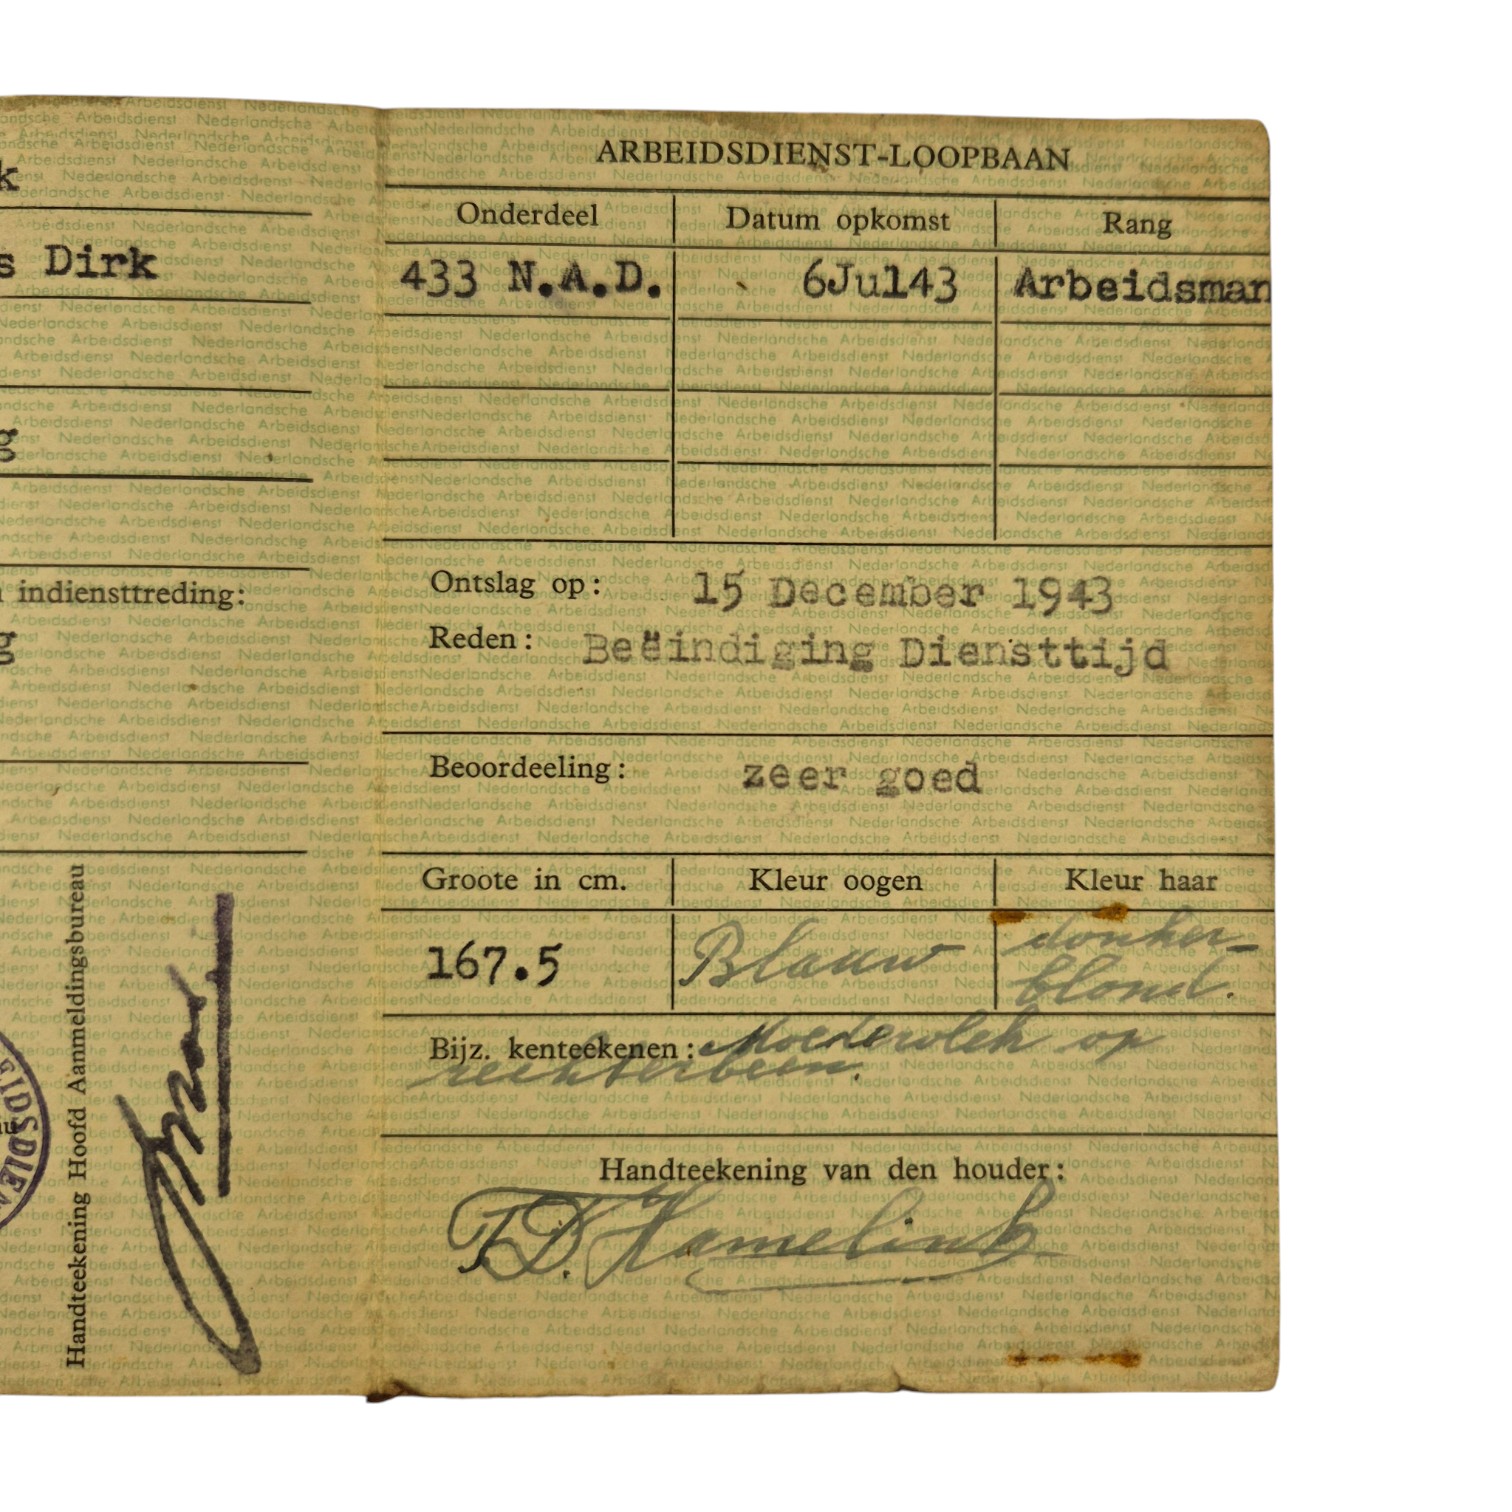 k
s Dirk
g
indiensttreding:
g
Handteekening Hoofd Aanmeldingsbureau
EIDSDIEN
ARBEIDSDIENST-LOOPBAAN
Onderdeel Datum opkomst Rang
433 N.A.D. 6Jul43 Arbeidsman
Ontslag op: 15 December 1943
Reden: Beëindiging Diensttijd
Beoordeeling: zeer goed
Groote in cm. Kleur oogen Kleur haar
167.5 Blauw donker-
blond.
Bijz. kenteekenen: Moedervlek op
rechterbeen.
Handteekening van den houder:
Hamelink